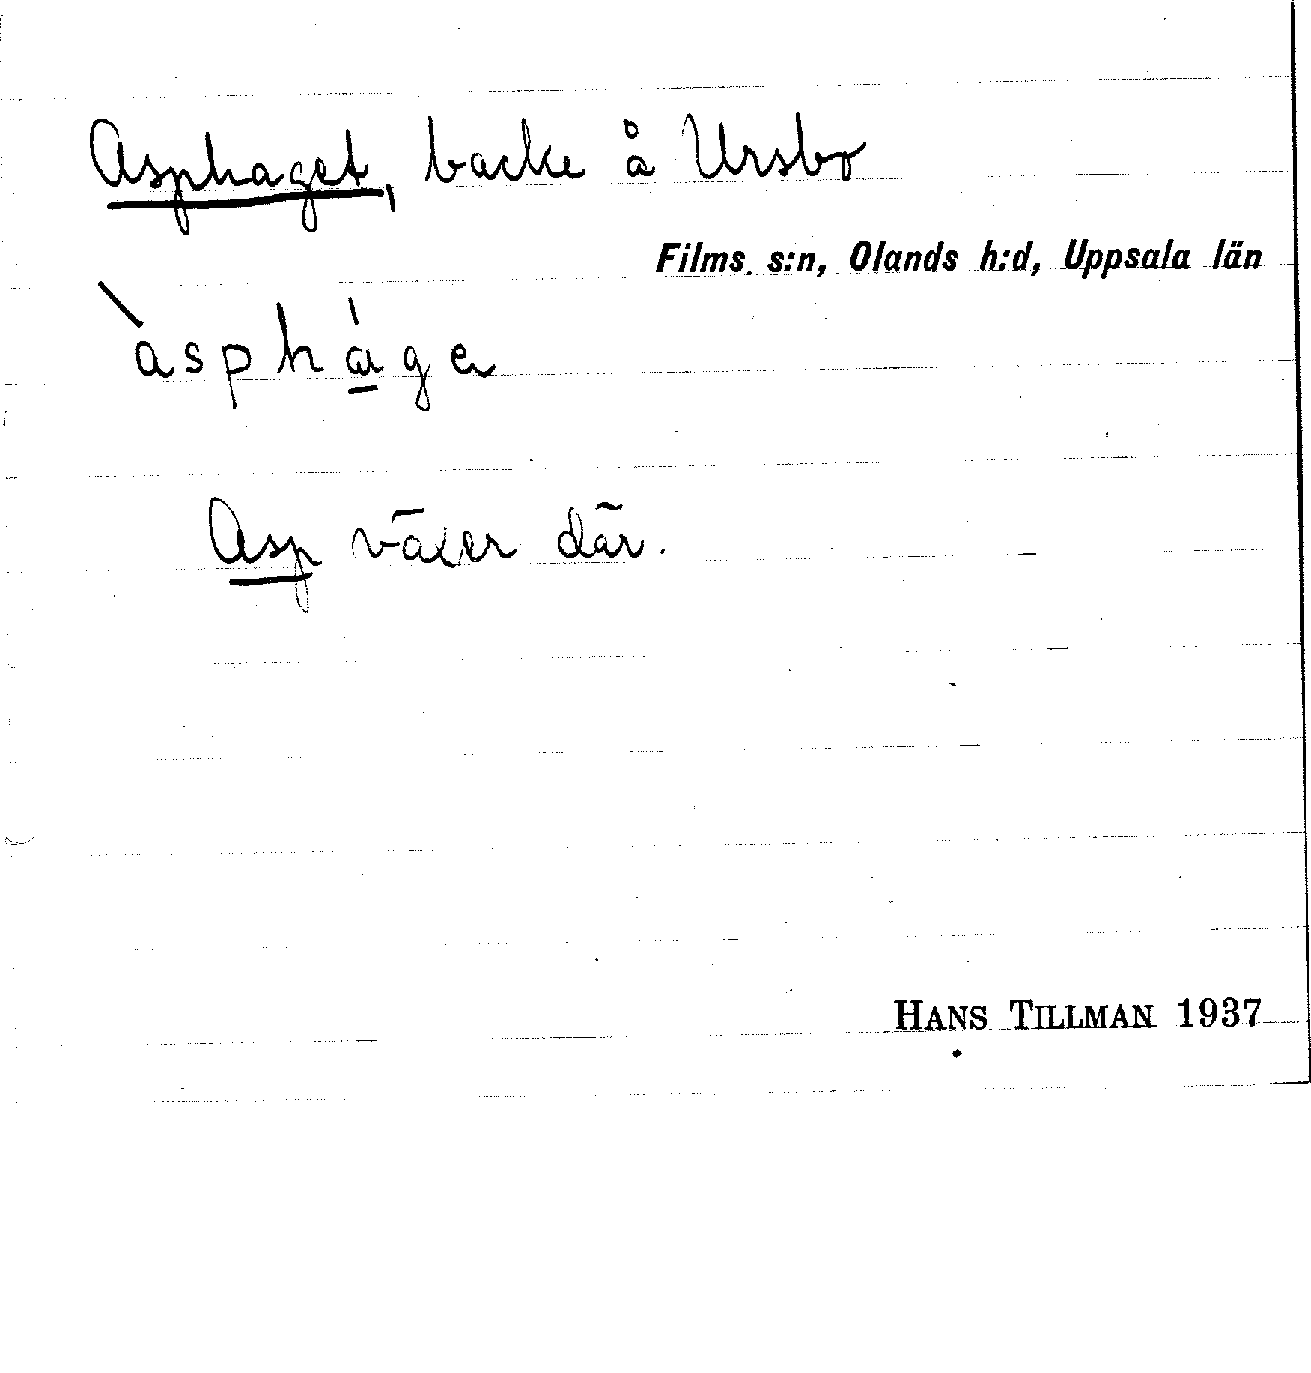 Asphaget, backe å Ursbo
Films s:n, Olands h:d, Uppsala län
àspháge
Asp växer där.
HANS TILLMAN 1937